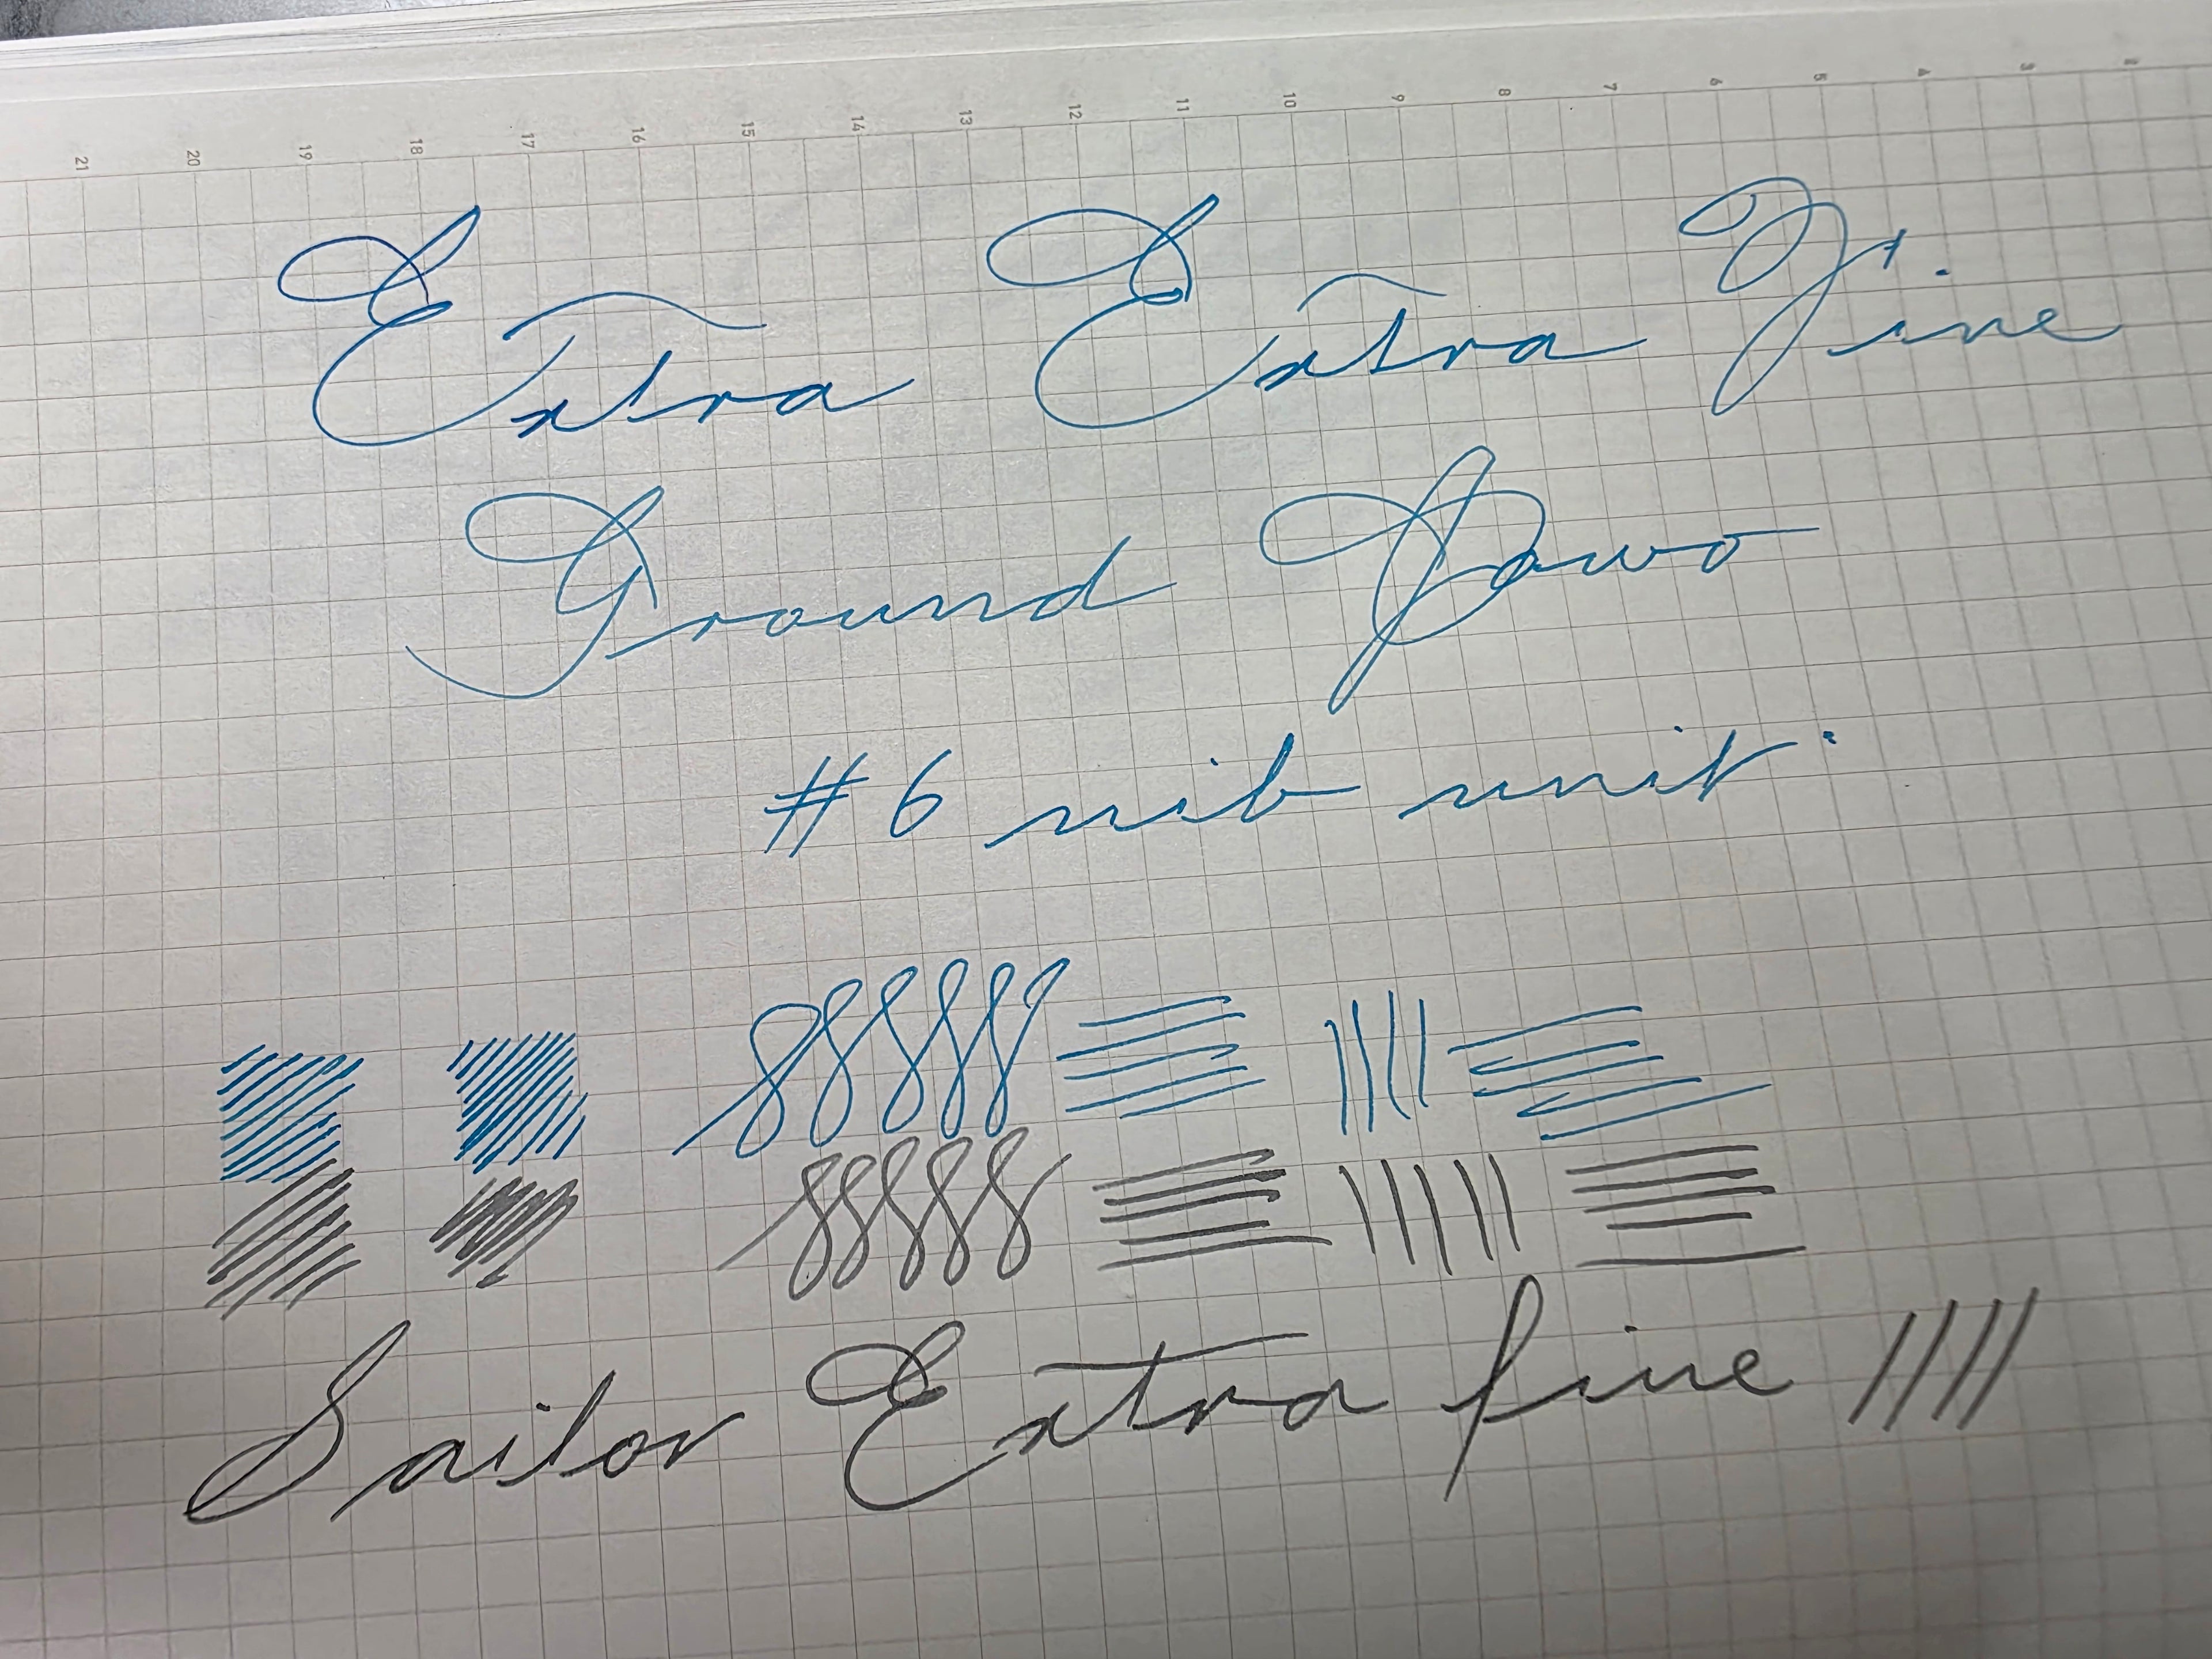 21 20 19 18 17 16 15 14 13 12 11 10 9 8 7 6 5 4 3 2
Extra Extra Fine
Ground Jowo
#6 nib unit.
Sailor Extra fine